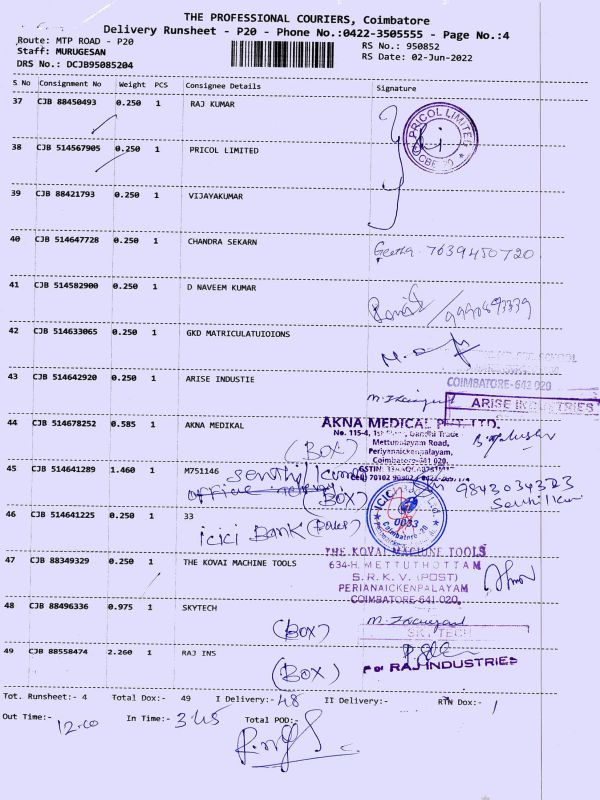 THE PROFESSIONAL COURIERS, Coimbatore
Delivery Runsheet - P20 - Phone No.:0422-3505555 - Page No.:4
Route: MTP ROAD - P20
RS No.: 950852
Staff: MURUGESAN
RS Date: 02-Jun-2022
DRS No.: DCJB95085204
S No Consignment No Weight PCS Consignee Details Signature
37 CJB 88450493 0.250 1 RAJ KUMAR
PRICOL LIMITED
CBE 20
38 CJB 514567905 0.250 1 PRICOL LIMITED
39 CJB 88421793 0.250 1 VIJAYAKUMAR
40 CJB 514647728 0.250 1 CHANDRA SEKARN Geetha 7639450720
41 CJB 514582900 0.250 1 D NAVEEM KUMAR
42 CJB 514633065 0.250 1 GKD MATRICULATUIOIONS
SCHOOL
COIMBATORE-641 020
43 CJB 514642920 0.250 1 ARISE INDUSTIE
ARISE INDUSTRIES
44 CJB 514678252 0.585 1 AKNA MEDIKAL
AKNA MEDICAL PVT. LTD.
No. 115-4,
Mettupalayam Road,
Periyanaickenpalayam,
Coimbatore-641 020.
(BOX)
45 CJB 514641289 1.460 1 M751146 Senthil Kumar
(BOX)
9843034323
Senthilkumar
46 CJB 514641225 0.250 1 33
ICICI Bank
ICICI
0033
Coimbatore-20
47 CJB 88349329 0.250 1 THE KOVAI MACHINE TOOLS
THE KOVAI MACHINE TOOLS
634-H, METTUTHOTTAM
S.R.K.V. (POST)
PERIANAICKENPALAYAM
COIMBATORE-641 020.
48 CJB 88496336 0.975 1 SKYTECH
(BOX)
SKYTECH
49 CJB 88558474 2.260 1 RAJ INS
(BOX)
For RAJ INDUSTRIES
Tot. Runsheet:- 4 Total Dox:- 49 I Delivery:- 48 II Delivery:- RTN Dox:- 1
Out Time:- 12.00 In Time:- 3.45 Total POD:-